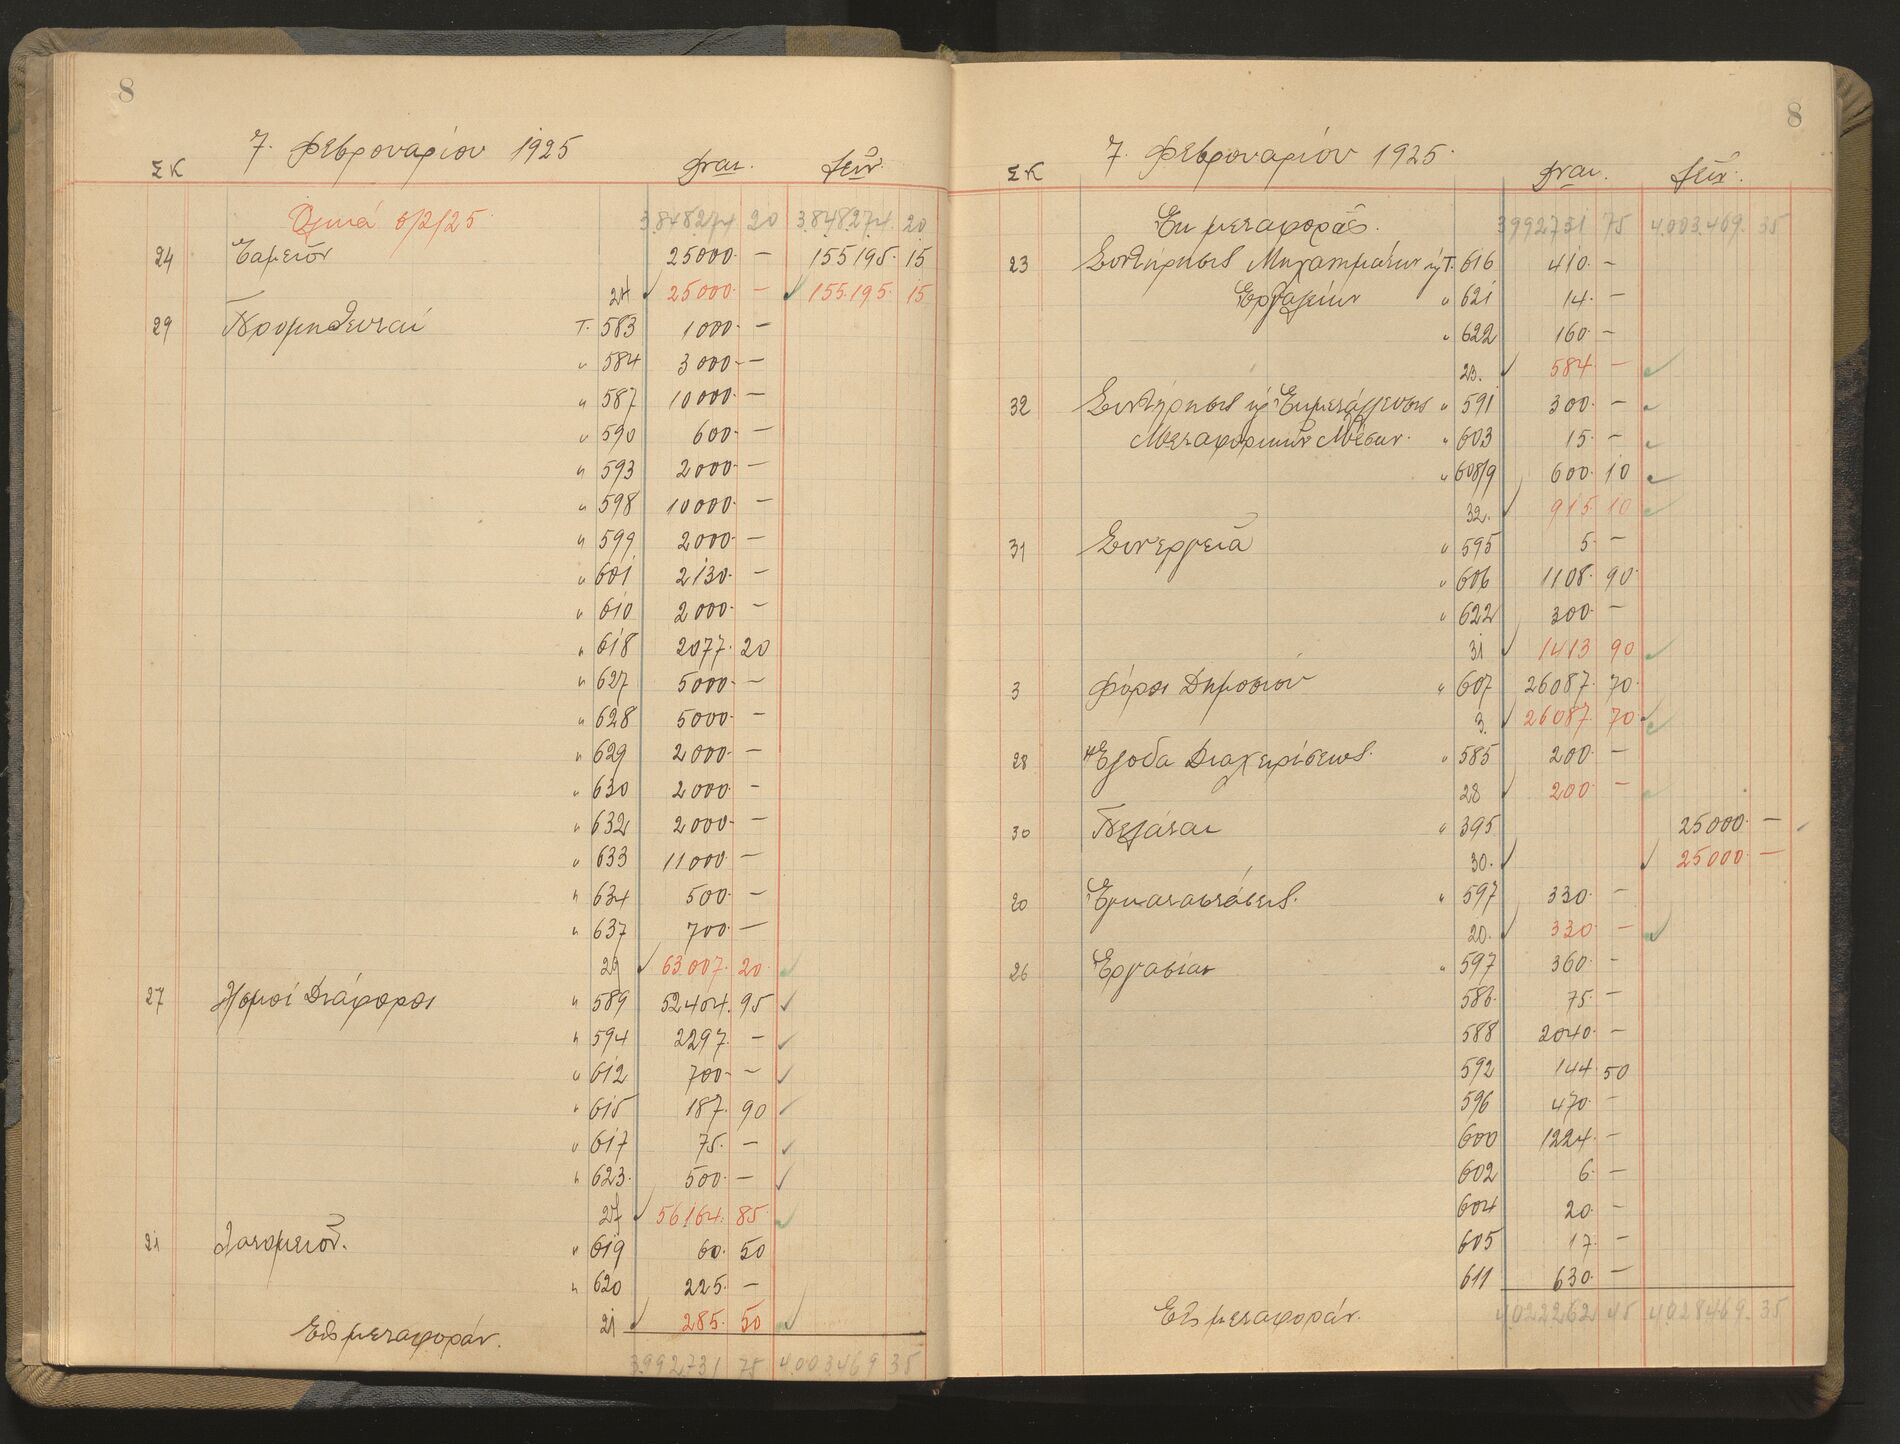 8
7. Φεβρουαρίου 1925
ΣΚ
Ολικά 5/2/25 3.848.274 20 3.848.274 20
24 Ταμείον 25000 — 155195 15
24 25000 — 155.195 15
29 Προμηθευταί Τ. 583 1000 —
" 584 3000 —
" 587 10000 —
" 590 600 —
" 593 2000 —
" 598 10000 —
" 599 2000 —
" 601 2130 —
" 610 2000 —
" 618 2077 20
" 627 5000 —
" 628 5000 —
" 629 2000 —
" 630 2000 —
" 632 2000 —
" 633 11000 —
" 634 500 —
" 637 700 —
29 63.007 20
27 Λ)σμοί Διάφοροι " 589 52404 95
" 594 2297 —
" 612 700 —
" 615 187 90
" 617 75 —
" 623 500 —
27 56164 85
21 Λατομείον. " 619 60 50
" 620 225 —
21 285 50
Εις μεταφοράν. 3992731 75 4.003.469 35
8
7. Φεβρουαρίου 1925
ΣΚ
Εκ μεταφοράς. 3992731 75 4.003.469 35
23 Συντήρησις Μηχανημάτων κ Τ. 616 410 —
Εργαλείων " 621 14 —
" 622 160 —
23. 584 —
32 Συντήρησις κ Εκμετάλλευσις " 591 300 —
Μεταφορικών Μέσων. " 603 15 —
" 608/9 600 10
32. 915 10
31 Συνεργεία " 595 5 —
" 606 1108 90
" 622 300 —
31 1413 90
3 Φόροι Δημοσίου " 607 26087 70
3. 26087 70
28 Έξοδα Διαχειρίσεως. " 585 200 —
28 200 —
30 Πελάται " 395 25000 —
30. 25000 —
20 Εγκαταστάσεις. " 597 330 —
20. 330 —
26 Εργασίαι " 597 360 —
586 75 —
588 2040 —
592 144 50
596 470 —
600 1224 —
602 6 —
604 20 —
605 17 —
611 630 —
Εις μεταφοράν. 4.022262 45 4.028469 35